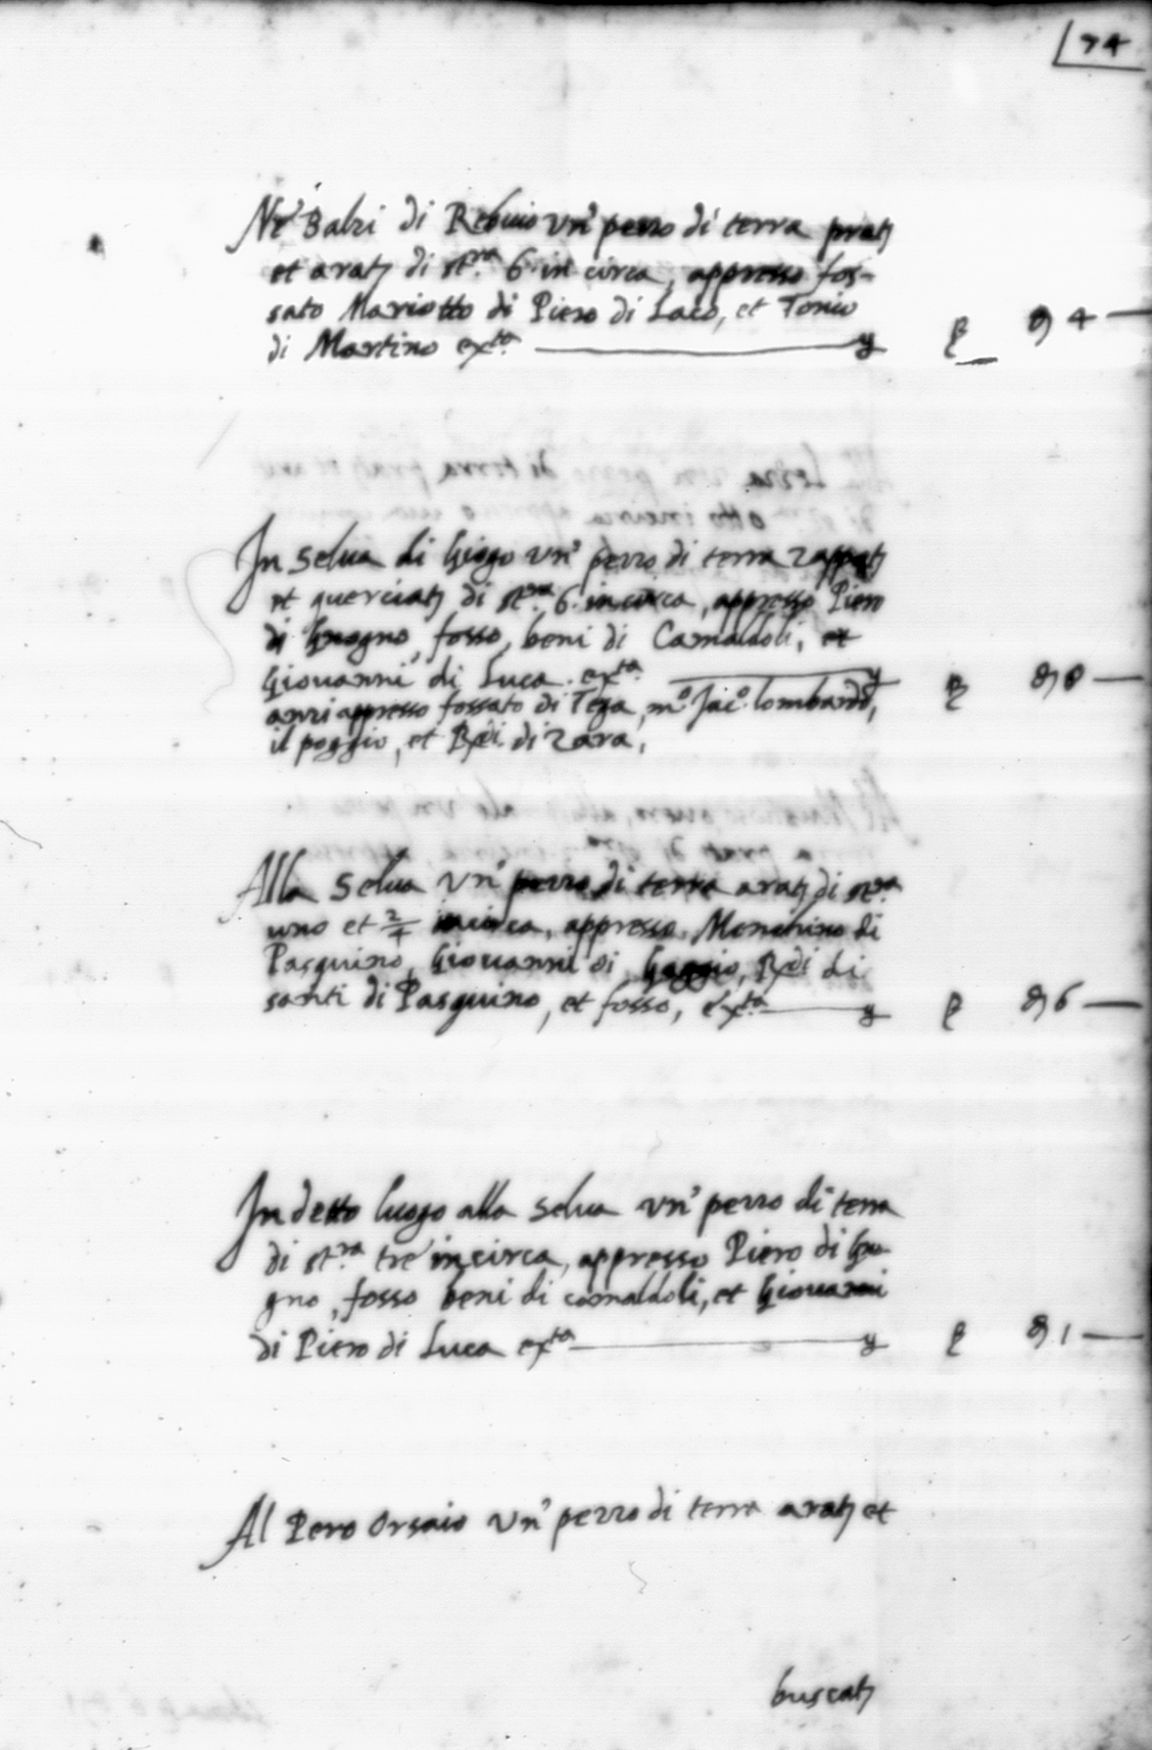 74
Ne' Balzi di un' pezzo di terra prat
et arat di st.ra 6 in circa, appresso fos-
sato Mariotto di Piero di Laco, et Tonio
di Martino exta
4
In Selva di un' pezzo di terra zappat
et querciat di st.ra 6 in circa, appresso Piero
di fosso, beni di Camaldoli, et
Giovanni di Luca exta
8
anzi appresso fossato di Tega, m.o Jac.o lombardo,
il poggio, et Redi di Zara,
Alla Selva un' pezzo di terra arat di st.ra
uno et 2/4 incirca, appresso Menchino di
Pasquino, Giovanni di Redi di
santi di Pasquino, et fosso, exta
6
In detto luogo alla Selva un' pezzo di terra
di st.ra tre incirca, appresso Piero di
gno, fosso beni di camaldoli, et Giovanni
di Piero di Luca exta
1
Al Pero Orsaio un' pezzo di terra arat et
buscat